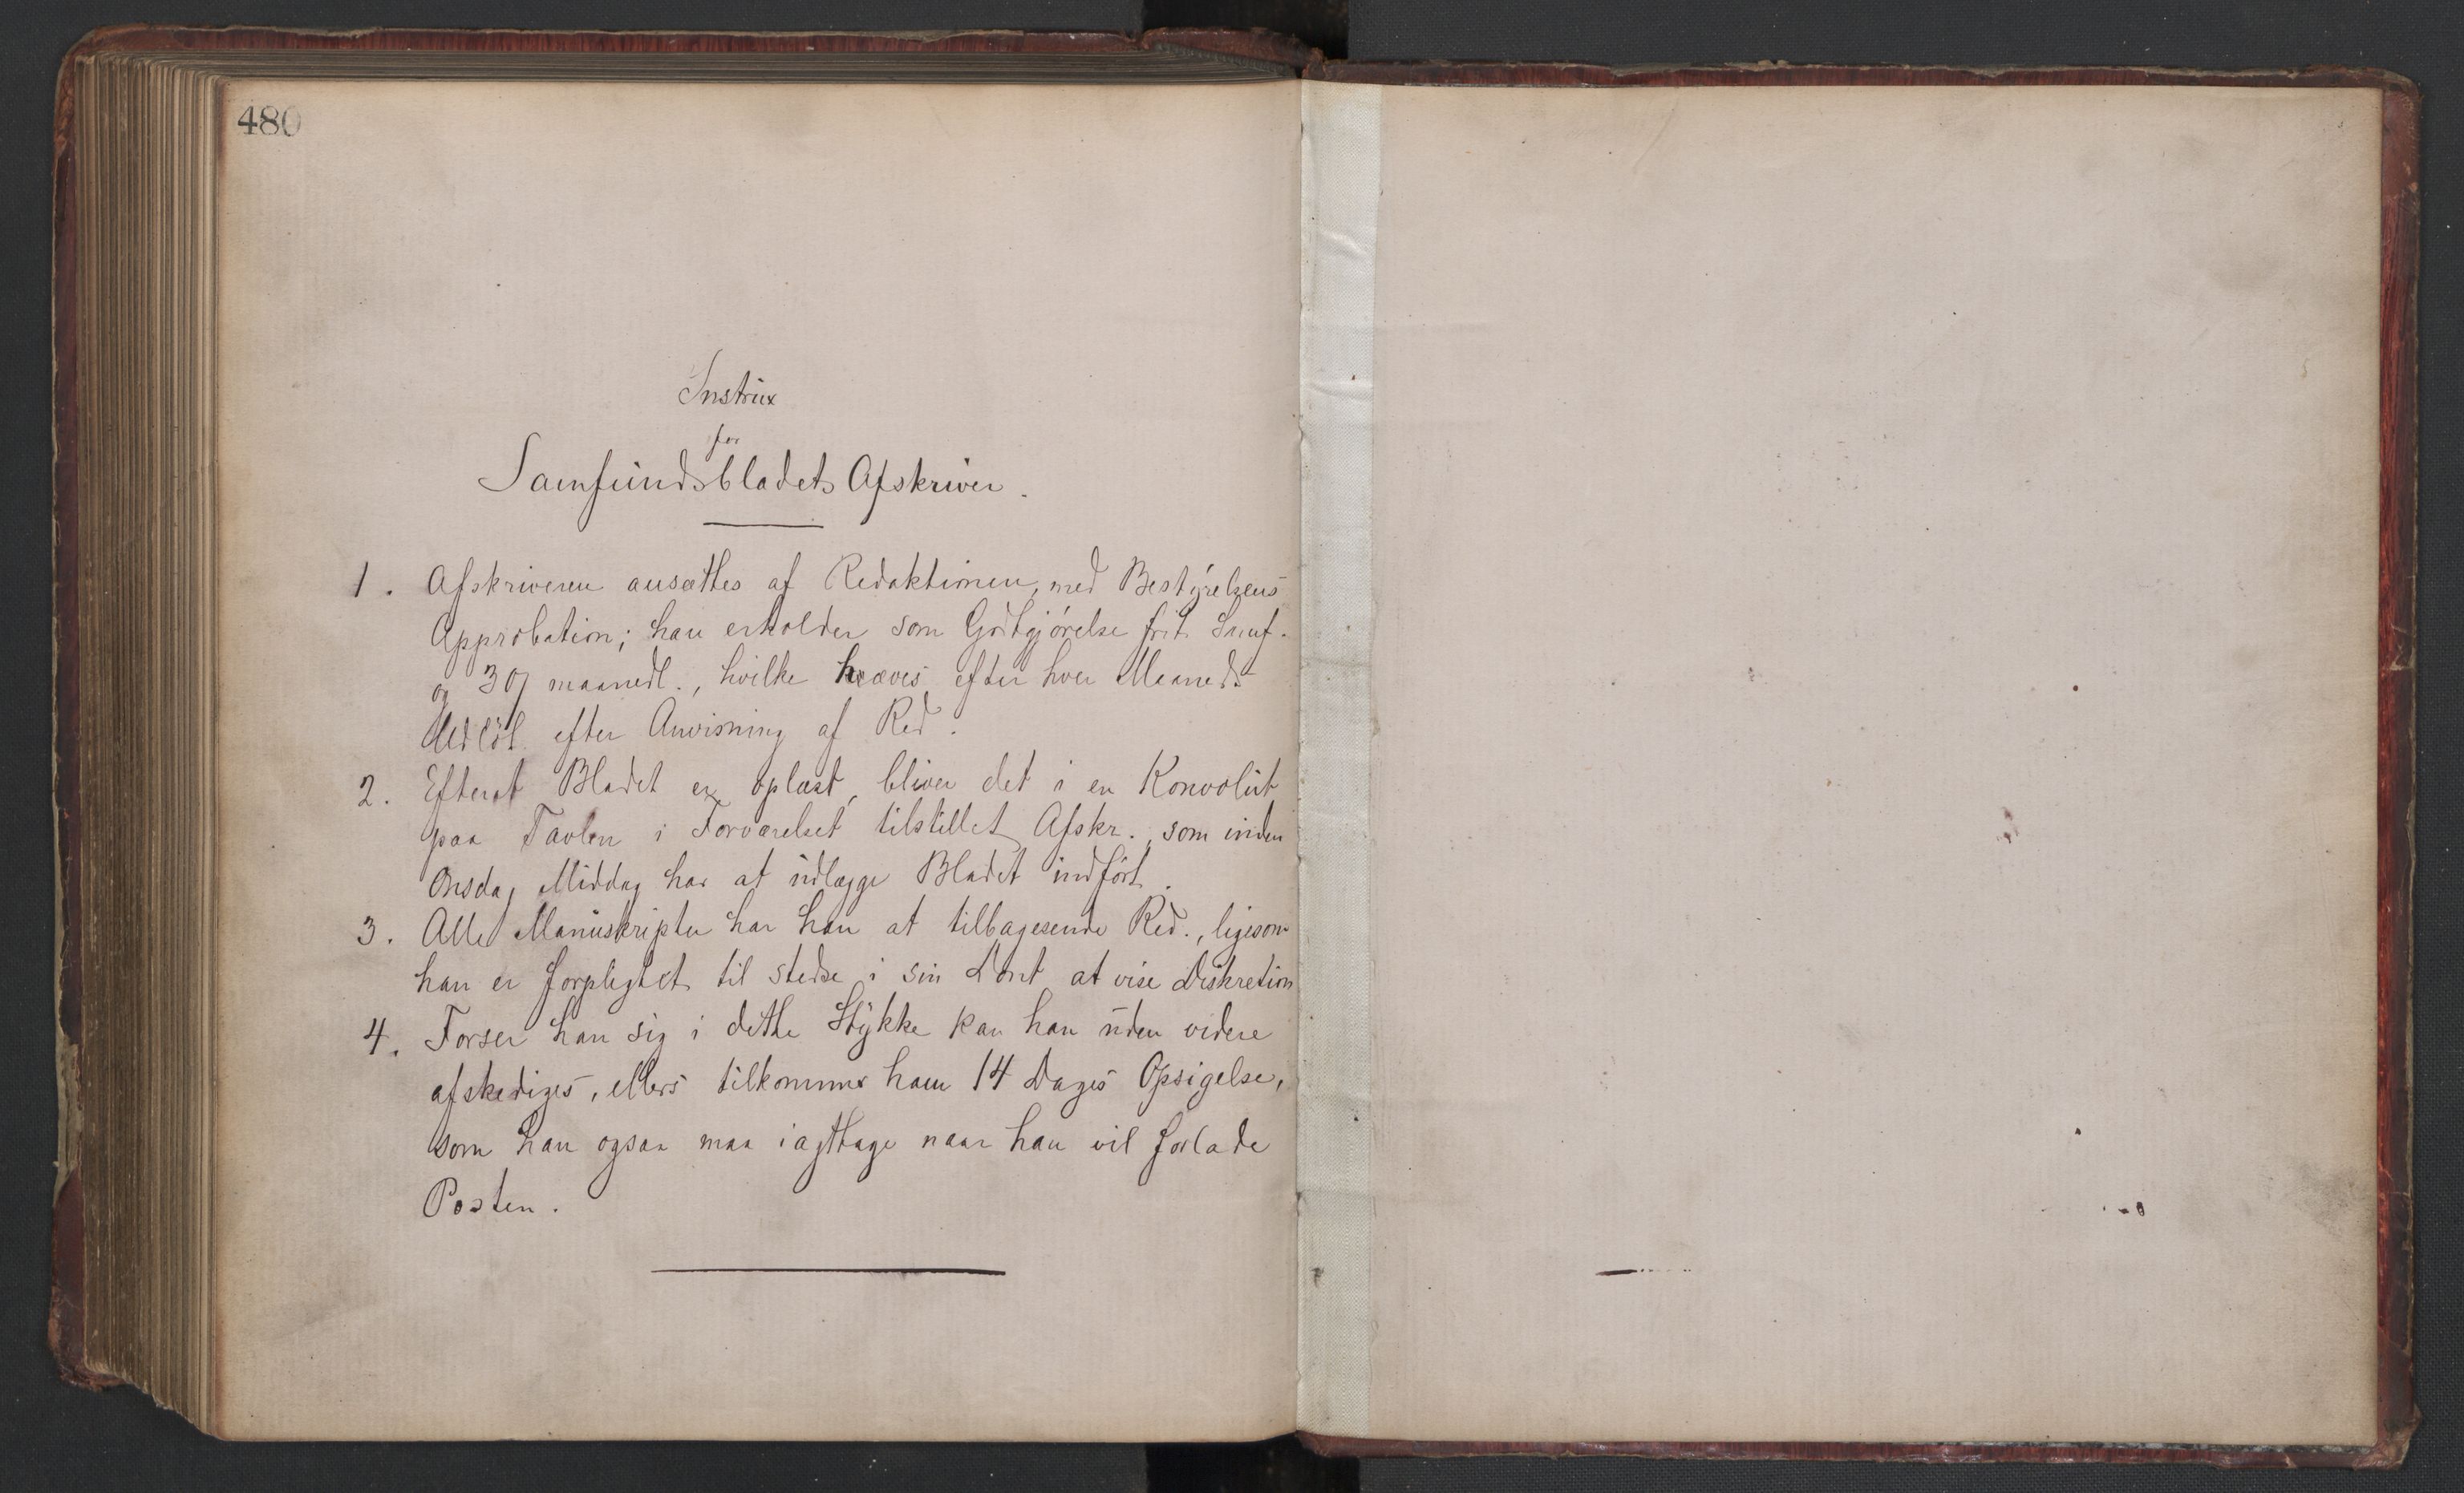 480
Instrux
for
Samfundsbladets Afskriver.
1. Afskriveren ansættes af Redaktionen, med Bestyrelsens
Approbation; han erholder som Godtgjörelse frit Samf.
og maanedl., hvilke hæves efter hver Maaneds
Udlöb efter Anvisning af Red.
2. Efterat Bladet er oplæst, bliver det i en Konvolut
paa Tavlen i Forværelset tilstillet Afskr., som inden
Onsdag Middag har at udlægge Bladet indfört.
3. Alle Manuskripter har han at tilbagesende Red., ligesom
han er forpligtet til stedse i sin Dont at vise Diskretion
4. Forser han sig i dette Stykke kan han uden videre
afskediges, ellers tilkommer ham 14 Dages Opsigelse,
som han ogsaa maa iagttage naar han vil forlade
Posten.